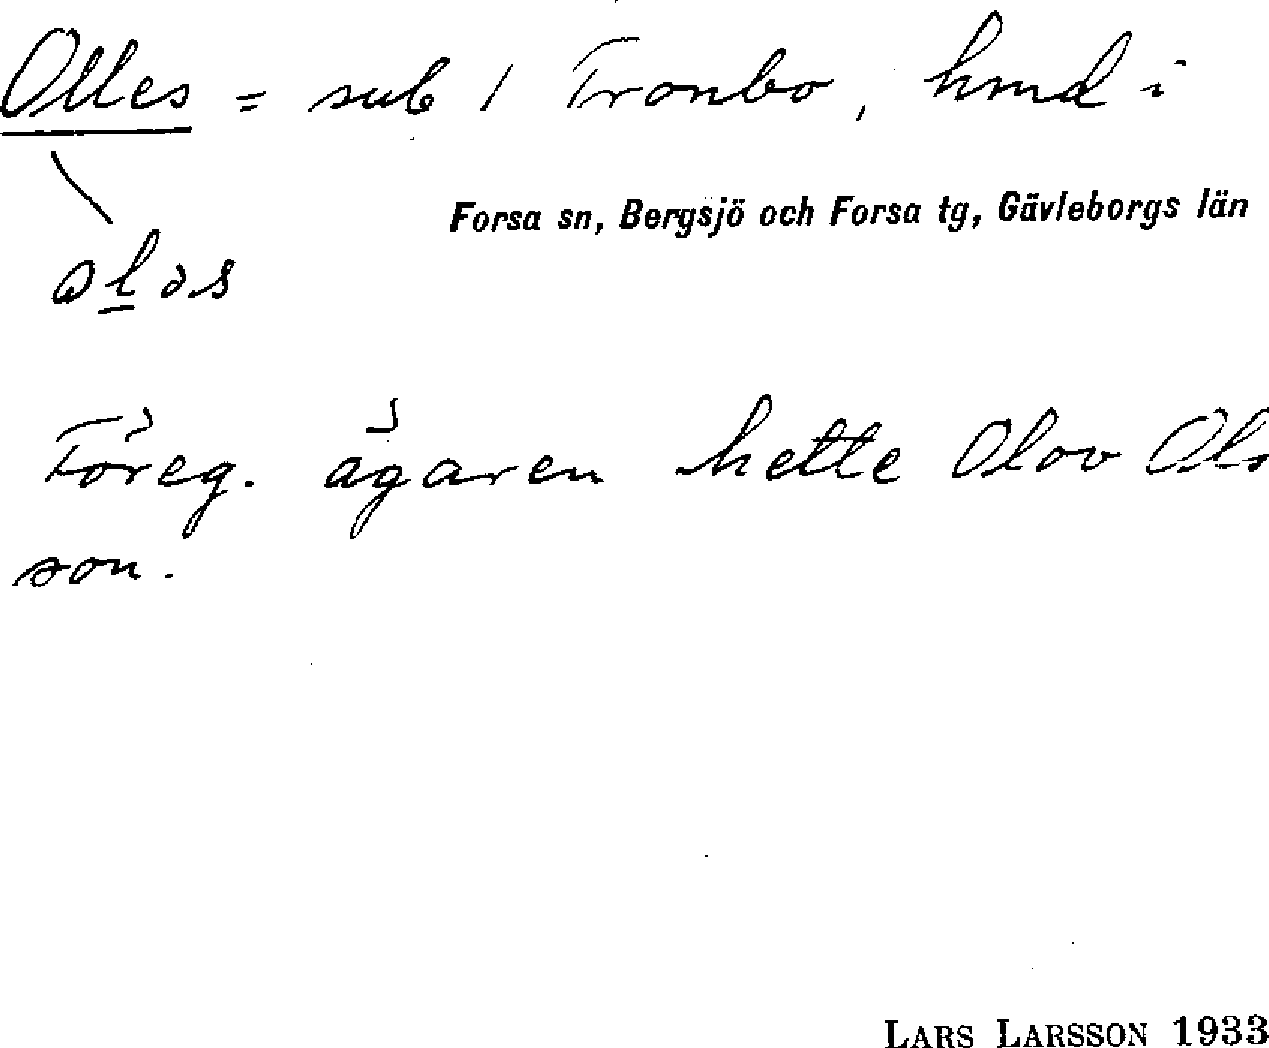 Olles = sub 1 Tronbo, hmd i
Forsa sn, Bergsjö och Forsa tg, Gävleborgs län
Föreg. ägaren hette Olov Ols
son.
LARS LARSSON 1933